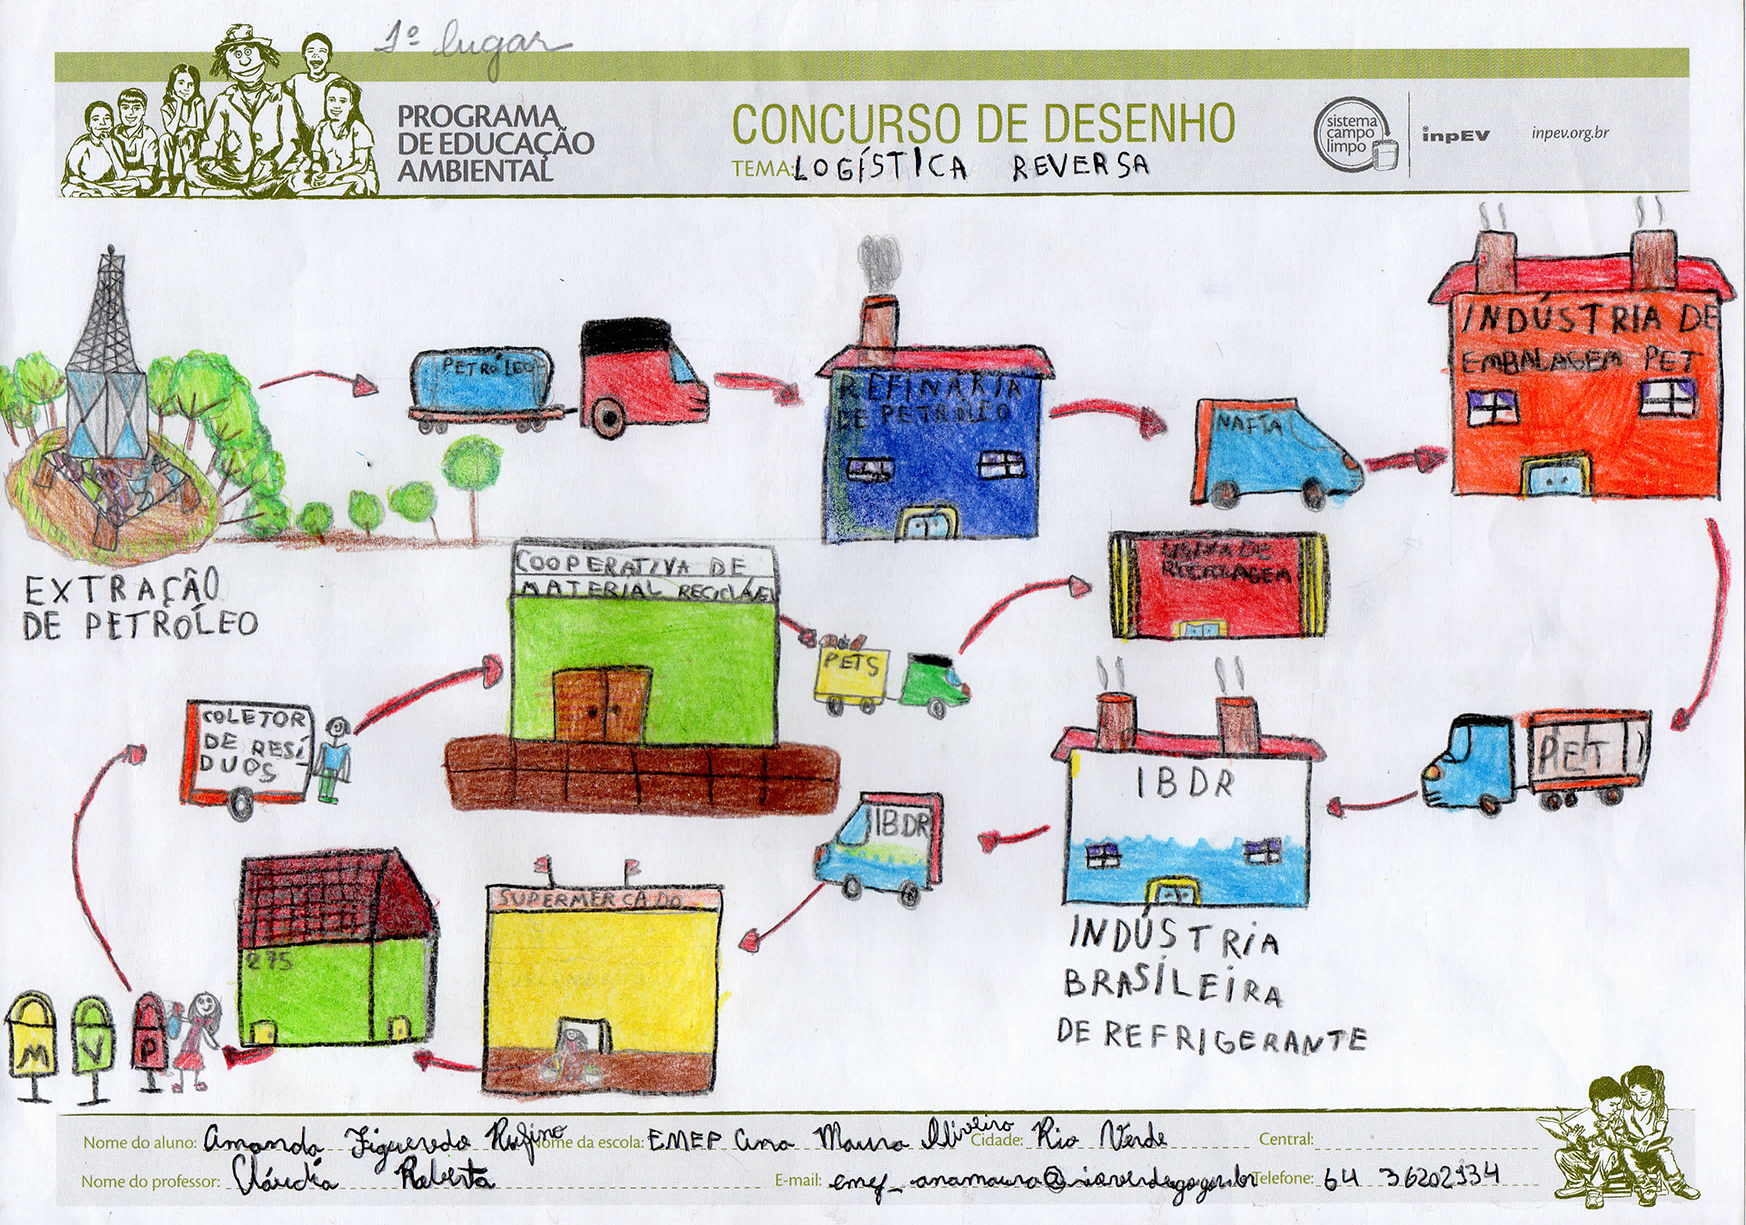 1º lugar
PROGRAMA
DE EDUCAÇÃO
AMBIENTAL
CONCURSO DE DESENHO
TEMA: LOGÍSTICA REVERSA
sistema
campo
limpo
inpEV
inpev.org.br
EXTRAÇÃO
DE PETRÓLEO
PETRÓLEO
REFINARIA
DE PETRÓLEO
NAFTA
INDÚSTRIA DE
EMBALAGEM PET
PET
IBDR
INDÚSTRIA
BRASILEIRA
DE REFRIGERANTE
IBDR
SUPERMERCADO
275
M
V
P
COLETOR
DE RESÍ
DUOS
COOPERATIVA DE
MATERIAL RECICLÁVEL
PETS
USINA DE
RECICLAGEM
Nome do aluno: Amanda Figueredo Rufino Nome da escola: EMEF Ana Maura Oliveira Cidade: Rio Verde Central:
Nome do professor: Cláudia Roberta E-mail: Telefone: 64 36202134